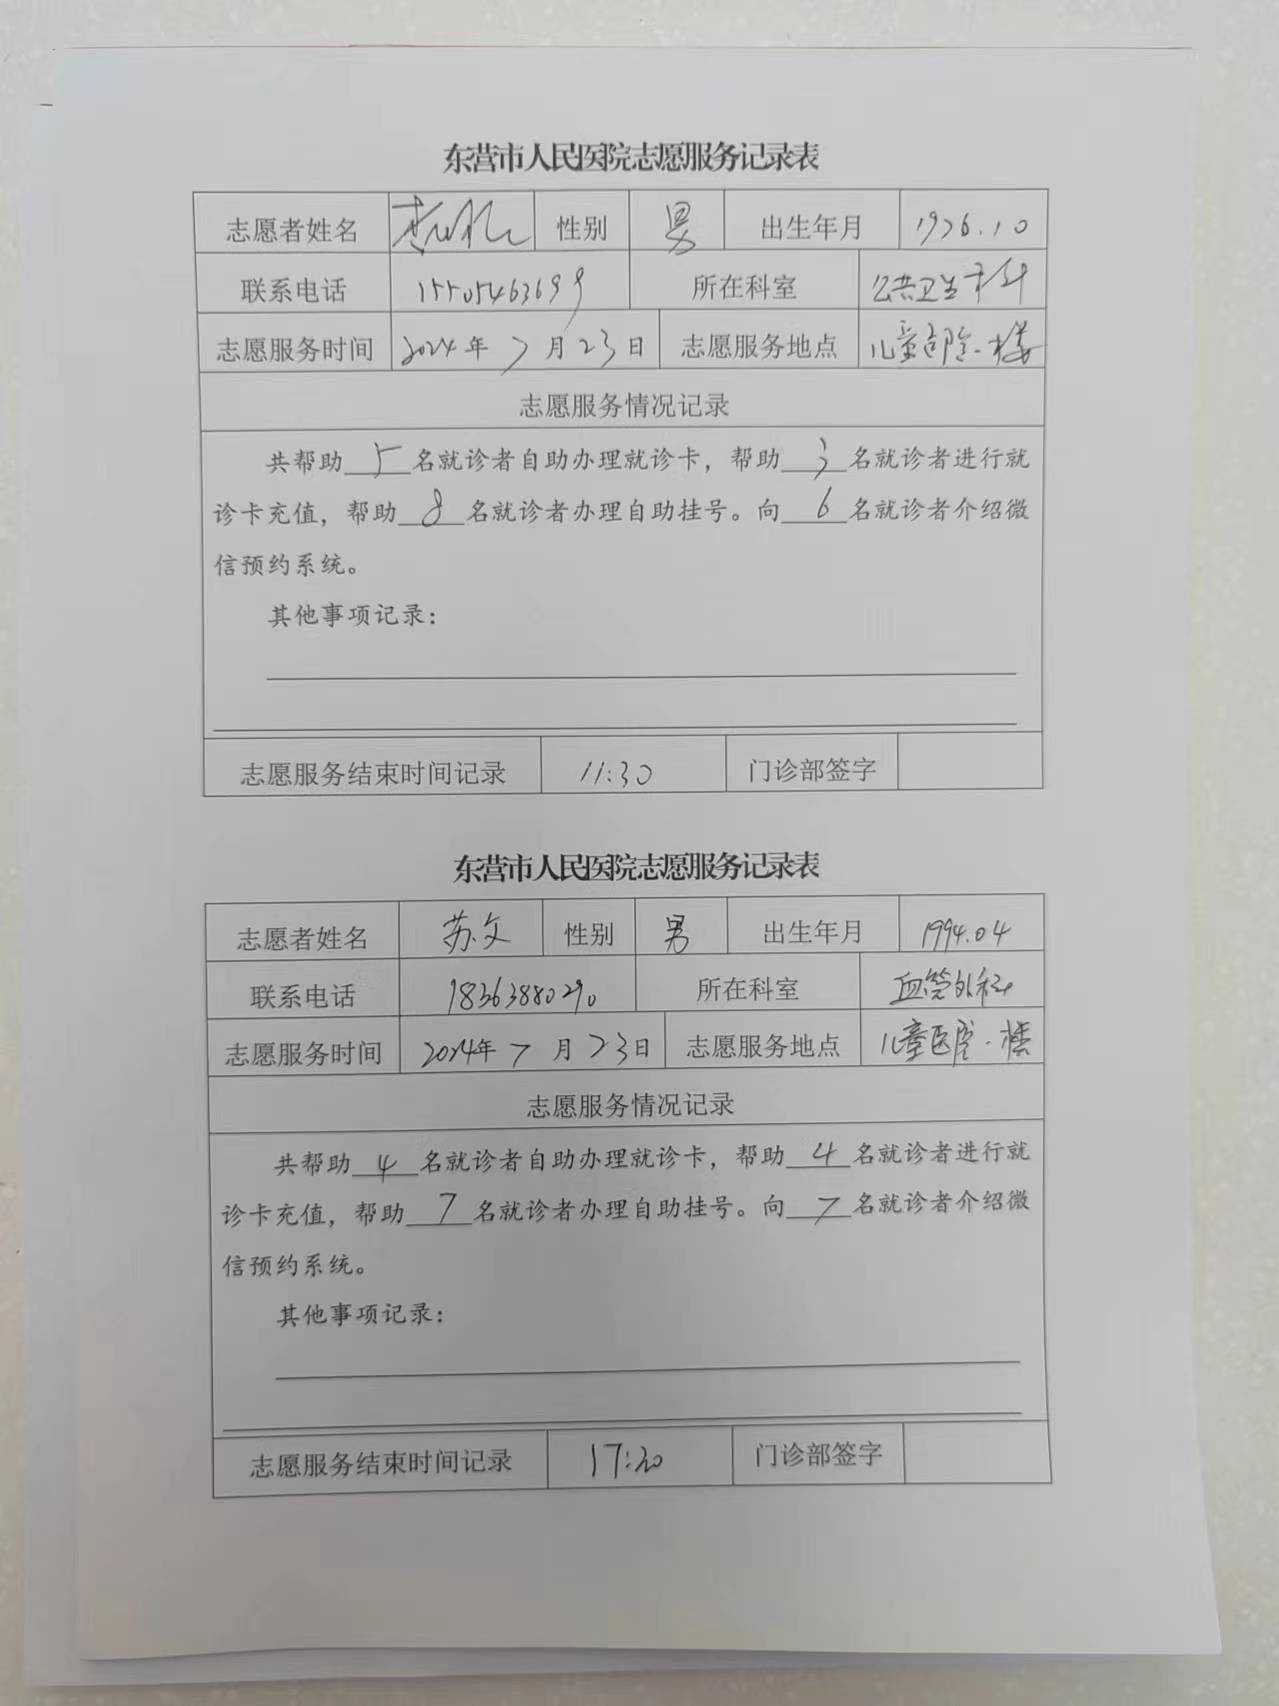 东营市人民医院志愿服务记录表
志愿者姓名 性别 男 出生年月 1976.10
联系电话 15505463699 所在科室 公共卫生科
志愿服务时间 2024年7月23日 志愿服务地点 儿童医院一楼
志愿服务情况记录
共帮助5名就诊者自助办理就诊卡，帮助3名就诊者进行就
诊卡充值，帮助8名就诊者办理自助挂号。向6名就诊者介绍微
信预约系统。
其他事项记录：
志愿服务结束时间记录 11:30 门诊部签字
东营市人民医院志愿服务记录表
志愿者姓名 苏文 性别 男 出生年月 1994.04
联系电话 18363880290 所在科室 血管外科
志愿服务时间 2024年7月23日 志愿服务地点 儿童医院一楼
志愿服务情况记录
共帮助4名就诊者自助办理就诊卡，帮助4名就诊者进行就
诊卡充值，帮助7名就诊者办理自助挂号。向7名就诊者介绍微
信预约系统。
其他事项记录：
志愿服务结束时间记录 17:20 门诊部签字